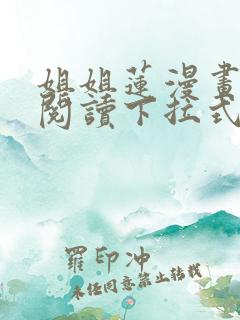 姐姐蓮漫畫
閱讀下拉式
羅印冲
未任同意禁止转载